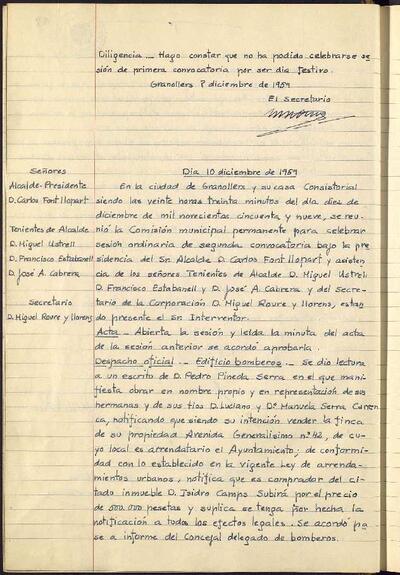 Diligencia._ Hago constar que no ha podido celebrarse se
sión de primera convocatoria por ser día festivo.
Granollers 8 diciembre de 1959
El Secretario
Día 10 diciembre de 1959
Señores
Alcalde-Presidente
D. Carlos Font Llopart
Tenientes de Alcalde
D. Miguel Ustrell
D. Francisco Estabanell
D. José A. Cabrera
Secretario
D. Miguel Roure y Llorens
En la ciudad de Granollers y su casa Consistorial
siendo las veinte horas treinta minutos del día diez de
diciembre de mil novecientos cincuenta y nueve, se reu-
nió la Comisión municipal permanente para celebrar
sesión ordinaria de segunda convocatoria bajo la pre
sidencia del Sr. Alcalde D. Carlos Font Llopart y asisten-
cia de los señores Tenientes de Alcalde D. Miguel Ustrell
D. Francisco Estabanell y D. José A. Cabrera y del Secre-
tario de la Corporación D. Miguel Roure y Llorens, estan
do presente el Sr. Interventor.
Acta._ Abierta la sesión y leída la minuta del acta
de la sesión anterior se acordó aprobarla.
Despacho oficial._ Edificio bomberos._ Se dio lectura
a un escrito de D. Pedro Pineda Serra en el que mani-
fiesta obrar en nombre propio y en representación de sus
hermanas y de sus tíos D. Luciano y Dª Manuela Serra
ca, notificando que siendo su intención vender la finca
de su propiedad Avenida Generalísimo nº 42, de cu-
yo local es arrendatario el Ayuntamiento; de conformi-
dad con lo establecido en la vigente Ley de arrenda-
mientos urbanos, notifica que es comprador del ci-
tado inmueble D. Isidro Camps Subirá por el precio
de 500.000 pesetas y suplica se tenga por hecha la
notificación a todos los efectos legales. Se acordó pa
se a informe del Concejal delegado de bomberos.